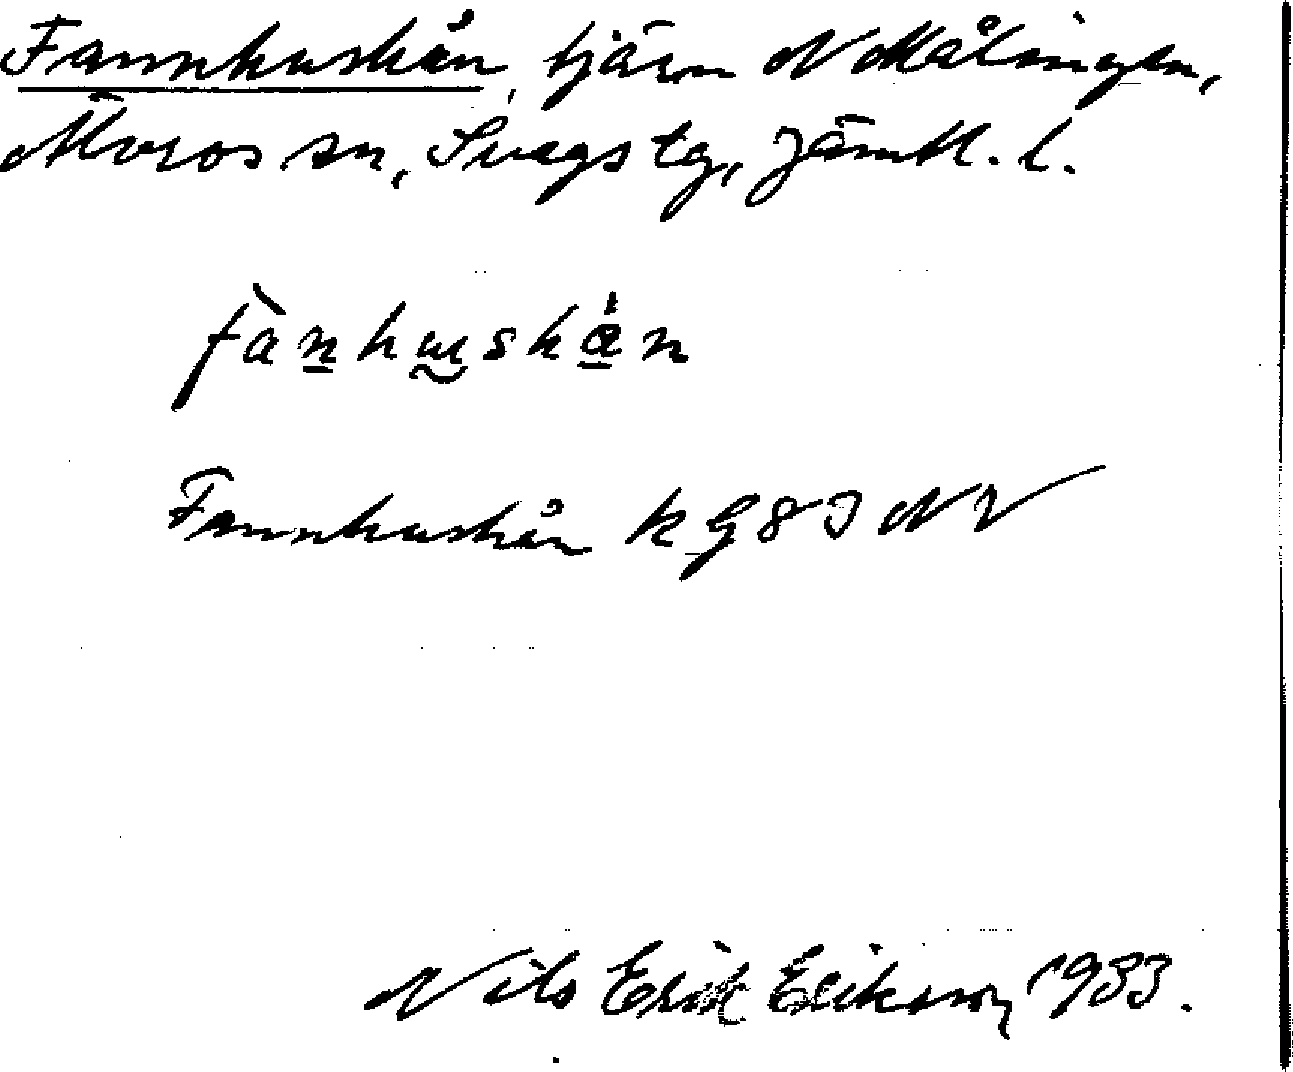 Fannhuskån, tjärn N Målingen,
Älvros sn, Svegs tg, Jämtl. l.
fànhuskån
Fannhuskån k G 8 J NV
Nils Erik Erikson, 1933.